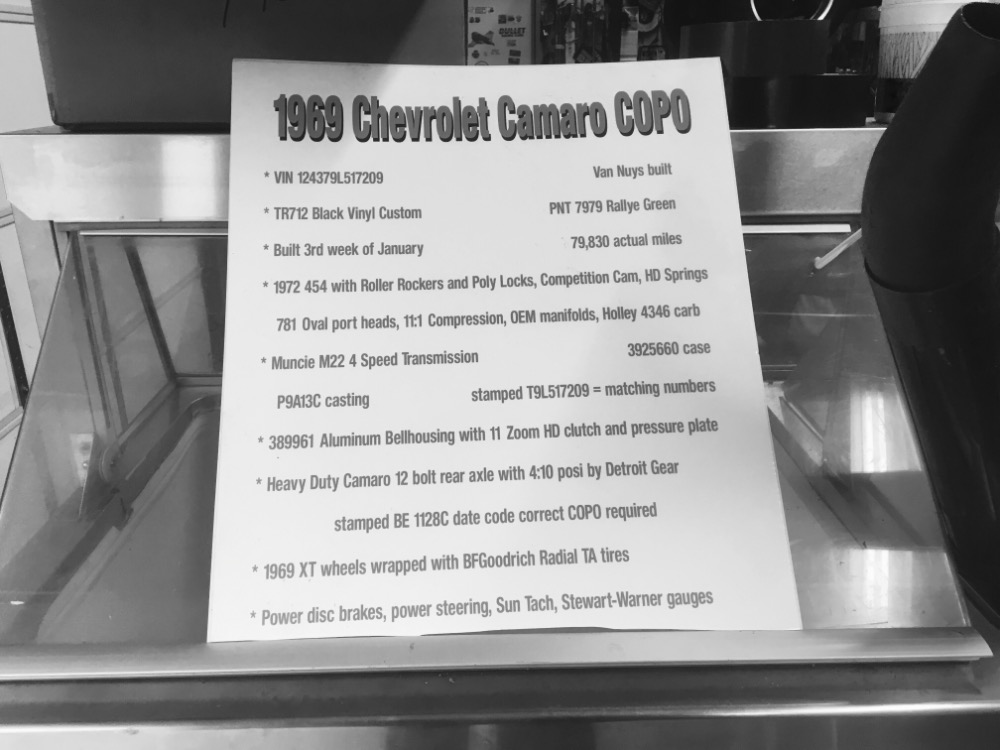 1969 Chevrolet Camaro COPO
* VIN 124379L517209 Van Nuys built
* TR712 Black Vinyl Custom PNT 7979 Rallye Green
* Built 3rd week of January 79,830 actual miles
* 1972 454 with Roller Rockers and Poly Locks, Competition Cam, HD Springs
781 Oval port heads, 11:1 Compression, OEM manifolds, Holley 4346 carb
* Muncie M22 4 Speed Transmission 3925660 case
P9A13C casting stamped T9L517209 = matching numbers
* 389961 Aluminum Bellhousing with 11 Zoom HD clutch and pressure plate
* Heavy Duty Camaro 12 bolt rear axle with 4:10 posi by Detroit Gear
stamped BE 1128C date code correct COPO required
* 1969 XT wheels wrapped with BFGoodrich Radial TA tires
* Power disc brakes, power steering, Sun Tach, Stewart-Warner gauges